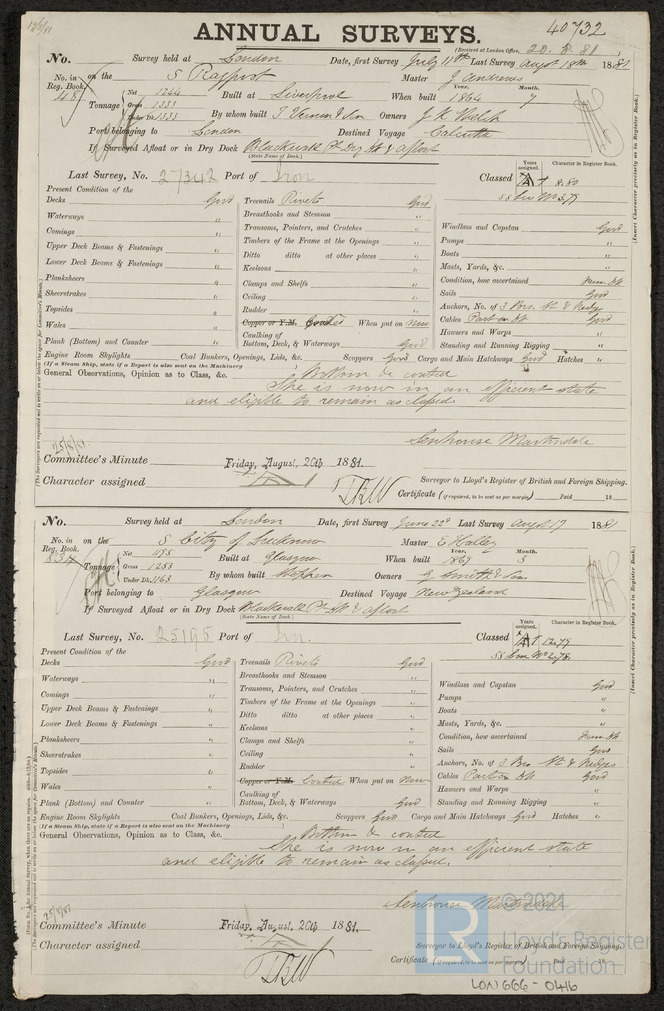 ANNUAL SURVEYS. 40732
(Received at London Office, 20.8.81)
No. Survey held at London Date, first Survey July 11th Last Survey Augt 18th 1881
No. in Reg. Book. on the S Master J Andrews
Tonnage Net 1244 Gross 1333 Under Dk. 1333 Built at Liverpool When built Year. 1864 Month. 7
By whom built T. Vernon & Son Owners J R Welsh
Port belonging to London Destined Voyage Calcutta
If Surveyed Afloat or in Dry Dock Blackwall Pt Dry Dk & afloat
(State Name of Dock.)
Last Survey, No. 27342 Port of Iron Classed Years assigned. Character in Register Book. A 1 8.80
(Insert Character precisely as in Register Book.)
Present Condition of the
Decks Good Treenails Rivets Good
Waterways " Breasthooks and Stemson "
Comings " Transoms, Pointers, and Crutches " Windlass and Capstan Good
Upper Deck Beams & Fastenings " Timbers of the Frame at the Openings " Pumps "
Lower Deck Beams & Fastenings " Ditto ditto at other places " Boats "
Planksheers " Keelsons " Masts, Yards, &c. "
Sheerstrakes " Clamps and Shelfs " Condition, how ascertained from Dk
Topsides " Ceiling " Sails Good
Wales " Rudder " Anchors, No. of 3 Brs. St & Kedg
Copper or Y.M. Coated When put on now Cables Part on Dk Good
Plank (Bottom) and Counter " Caulking of Bottom, Deck, & Waterways Good Hawsers and Warps "
Standing and Running Rigging "
Engine Room Skylights Coal Bunkers, Openings, Lids, &c. Scuppers Good Cargo and Main Hatchways Good Hatches "
(If a Steam Ship, state if a Report is also sent on the Machinery
General Observations, Opinion as to Class, &c. Bottom be coated
She is now in an efficient state
and eligible to remain as classed.
Senhouse Martindale
25/8/81.
Committee's Minute Friday, August, 26th 1881.
Surveyor to Lloyd's Register of British and Foreign Shipping.
Character assigned
Certificate (if required, to be sent as per margin) Paid 18
No. Survey held at London Date, first Survey June 22d Last Survey Augst 17 1881
No. in Reg. Book. on the S City of Lucknow Master E Halley
Tonnage Net 1195 Gross 1253 Under Dk. 1163 Built at Glasgow When built Year. 1867 Month. 5
By whom built Stephen Owners G Smith & Son
Port belonging to Glasgow Destined Voyage New Zealand
If Surveyed Afloat or in Dry Dock Blackwall Pt Dk & afloat
(State Name of Dock.)
Last Survey, No. 25195 Port of Iron. Classed Years assigned. Character in Register Book. A 1 12.79
(Insert Character precisely as in Register Book.)
Present Condition of the
Decks Good Treenails Rivets Good
Waterways " Breasthooks and Stemson "
Comings " Transoms, Pointers, and Crutches " Windlass and Capstan Good
Upper Deck Beams & Fastenings " Timbers of the Frame at the Openings " Pumps "
Lower Deck Beams & Fastenings " Ditto ditto at other places " Boats "
Planksheers " Keelsons " Masts, Yards, &c. "
Sheerstrakes " Clamps and Shelfs " Condition, how ascertained from Dk
Topsides " Ceiling " Sails Good
Wales " Rudder " Anchors, No. of 3 Brs St & Kedges
Copper or Y.M. Coated When put on Now Cables Part on Dk Good
Plank (Bottom) and Counter " Caulking of Bottom, Deck, & Waterways Good Hawsers and Warps "
Standing and Running Rigging "
Engine Room Skylights Coal Bunkers, Openings, Lids, &c. Scuppers Good Cargo and Main Hatchways Good Hatches "
(If a Steam Ship, state if a Report is also sent on the Machinery
General Observations, Opinion as to Class, &c. Bottom & coated
She is now in an efficient state
and eligible to remain as classed.
Senhouse Martindale
25/8/81
Committee's Minute Friday, August, 26th 1881.
Character assigned
Surveyor to Lloyd's Register of British and Foreign Shipping.
Certificate (if required, to be sent as per margin) Paid 18
LR © 2021
Lloyd's Register
Foundation
LON666-0416